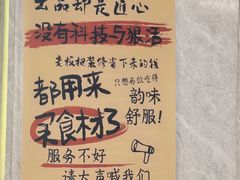 出品却是匠心
没有科技与狠活
老板把装修省下来的钱
都用来
只想为你吃得
买食材了
韵味
舒服!
服务不好
请大声喊我们